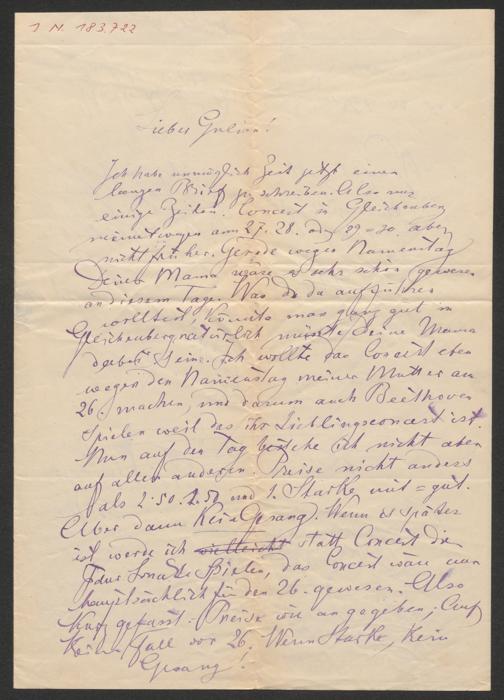 I N. 183.722
Lieber
Ich habe unmöglich Zeit jetzt einen
langen Brief zu schreiben. Also nur
einige Zeilen. Concert in Gleichenberg
meinetwegen am 27. 28. 29 = 30. aber
nicht früher. Gerade wegen Namenstag
Deiner Mama wäre es sehr schön gewesen
an diesem Tage. Was du da aufzuführen
wolltest könnte man ganz gut in
Gleichenberg natürlich müsste Deine Mama
dabei sein. Ich wollte das Concert eben
wegen den Namenstag meiner Mutter am
26. machen, und darum auch Beethoven
spielen weil das ihr Lieblingsconcert ist.
Nun auf den Tag bestehe ich nicht aber
auf allen anderen. Preise nicht anders
als 2.50. 2.50 und 1. Starke mit = gut.
Aber dann Kein Gesang. Wenn es später
ist werde ich vielleicht statt Concert die
Sonate spielen, das Concert wäre nur
hauptsächlich für den 26. gewesen. Also
Kurz gefasst. Preise wie angegeben, Auf
Keinen Fall vor 26. Wenn Starke, Kein
Gesang!